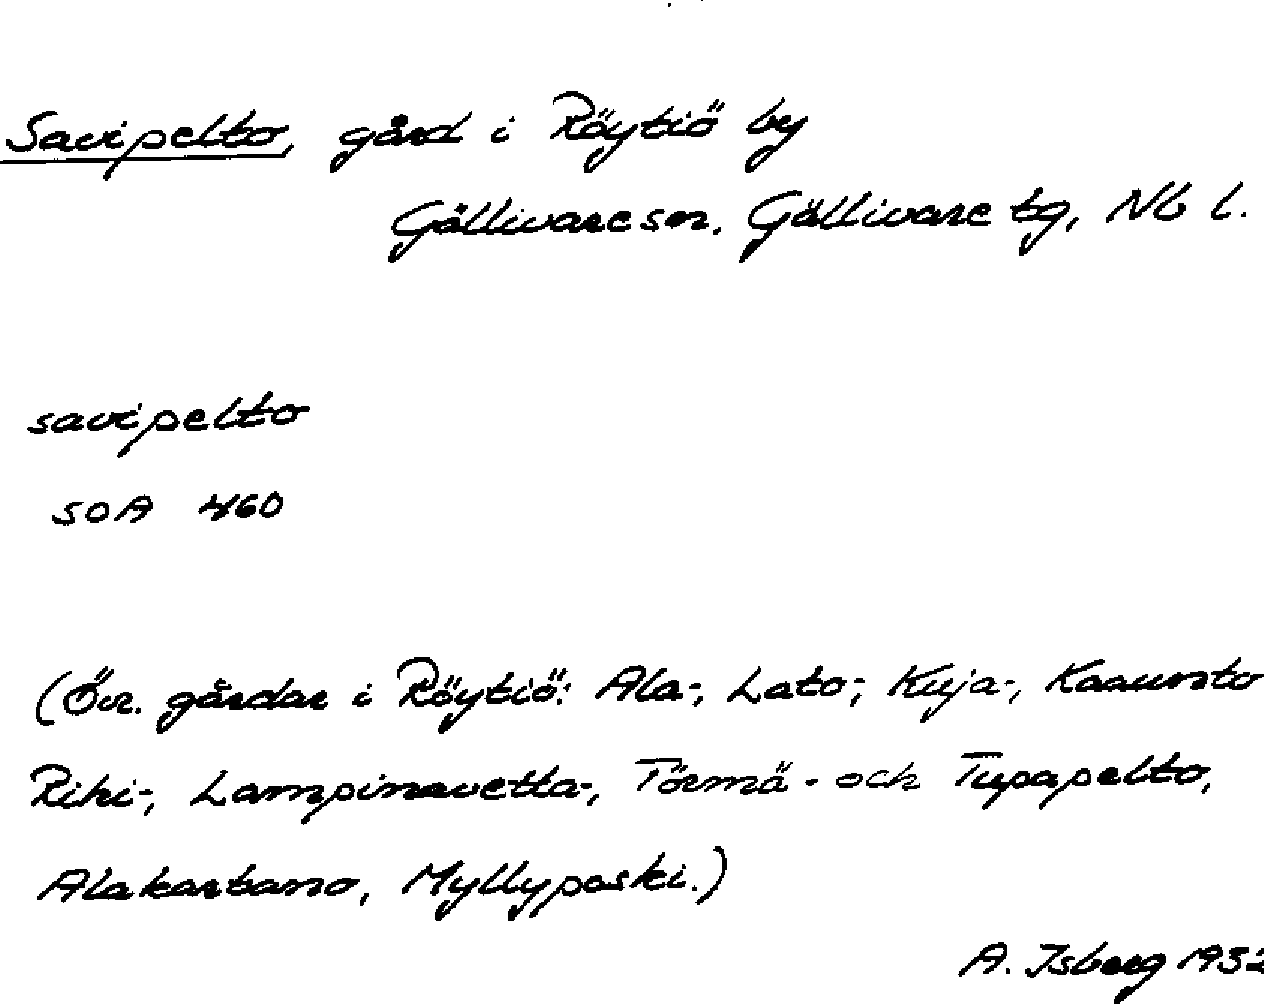 Savipelto, gård i Röytiö by
Gällivare sn. Gällivare tg, Nb l.
savipelto
SOA 460
(Övr. gårdar i Röytiö: Ala-, Lato-, Kuja-,
Rihi-, Lampinavetta-, Törmä- och Tupapelto,
Alakartano, Myllyposki.)
A. Isberg